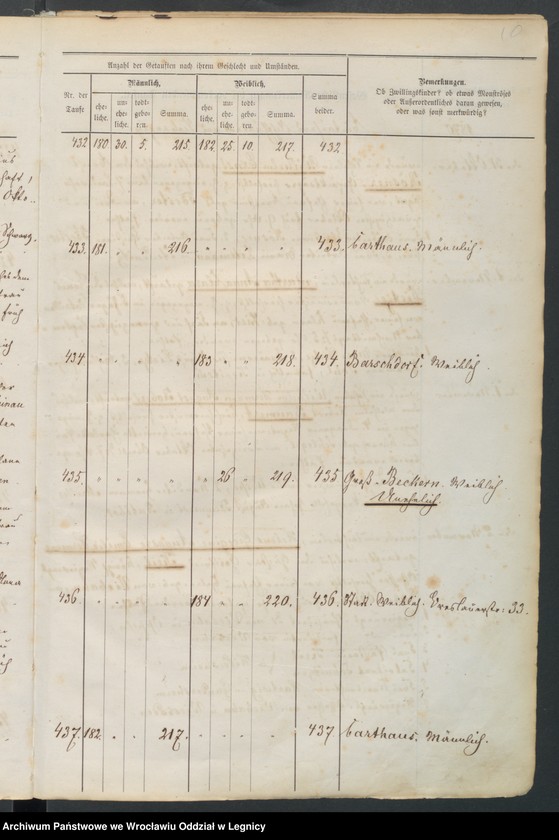 Anzahl der Getauften nach ihrem Geschlecht und Umständen.
Nr. der Taufe
Männlich,
Weiblich,
Summa beider.
Bemerkungen.
Ob Zwillingskinder? ob etwas Monströses
oder Außerordentliches daran gewesen,
oder was sonst merkwürdig?
ehe-liche. un-ehe-liche. todt-gebo-ren. Summa. ehe-liche. un-ehe-liche. todt-gebo-ren. Summa.
432 180. 30. 5. 215. 182. 25. 10. 217. 432.
433. 181. . . 216. . . . . 433. Carthaus. Männlich.
434 . . . . 183 . . 218. 434. Barschdorf. Weiblich.
435. . . . . . 26 . 219. 435 Groß-Beckern. Weiblich.
Unehelich.
436 . . . . 184 . . 220. 436. Stadt. Weiblich. Breslauerstr: 33.
437. 182. . . 217. . . . . 437 Carthaus. Männlich.
Schwarz.
früh
Archiwum Państwowe we Wrocławiu Oddział w Legnicy